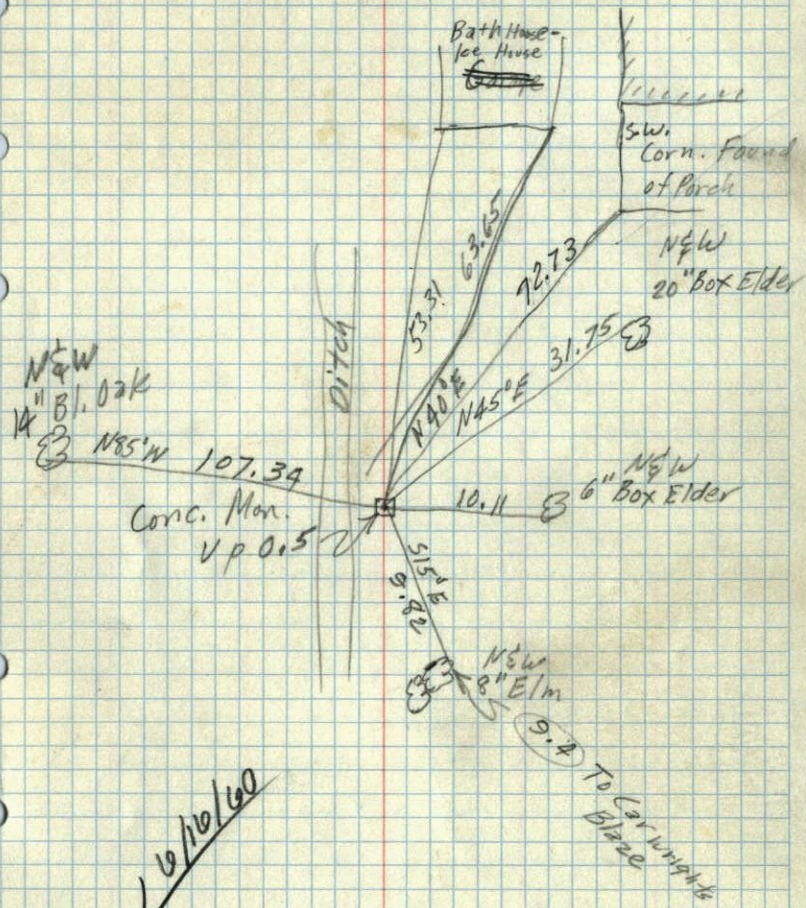 Bath House-
Ice House
S.W.
Corn. Found
of Porch
N&W
20" Box Elder
63.65
72.73
53.31
31.75
Ditch
N40°E
N45°E
N&W
14" Bl. Oak
N85°W 107.34
Conc. Mon.
Up 0.5
10.11
N&W
6" Box Elder
S15°E
9.82
N&W
8" Elm
9.4 To Carwrights
Blaze
6/16/60